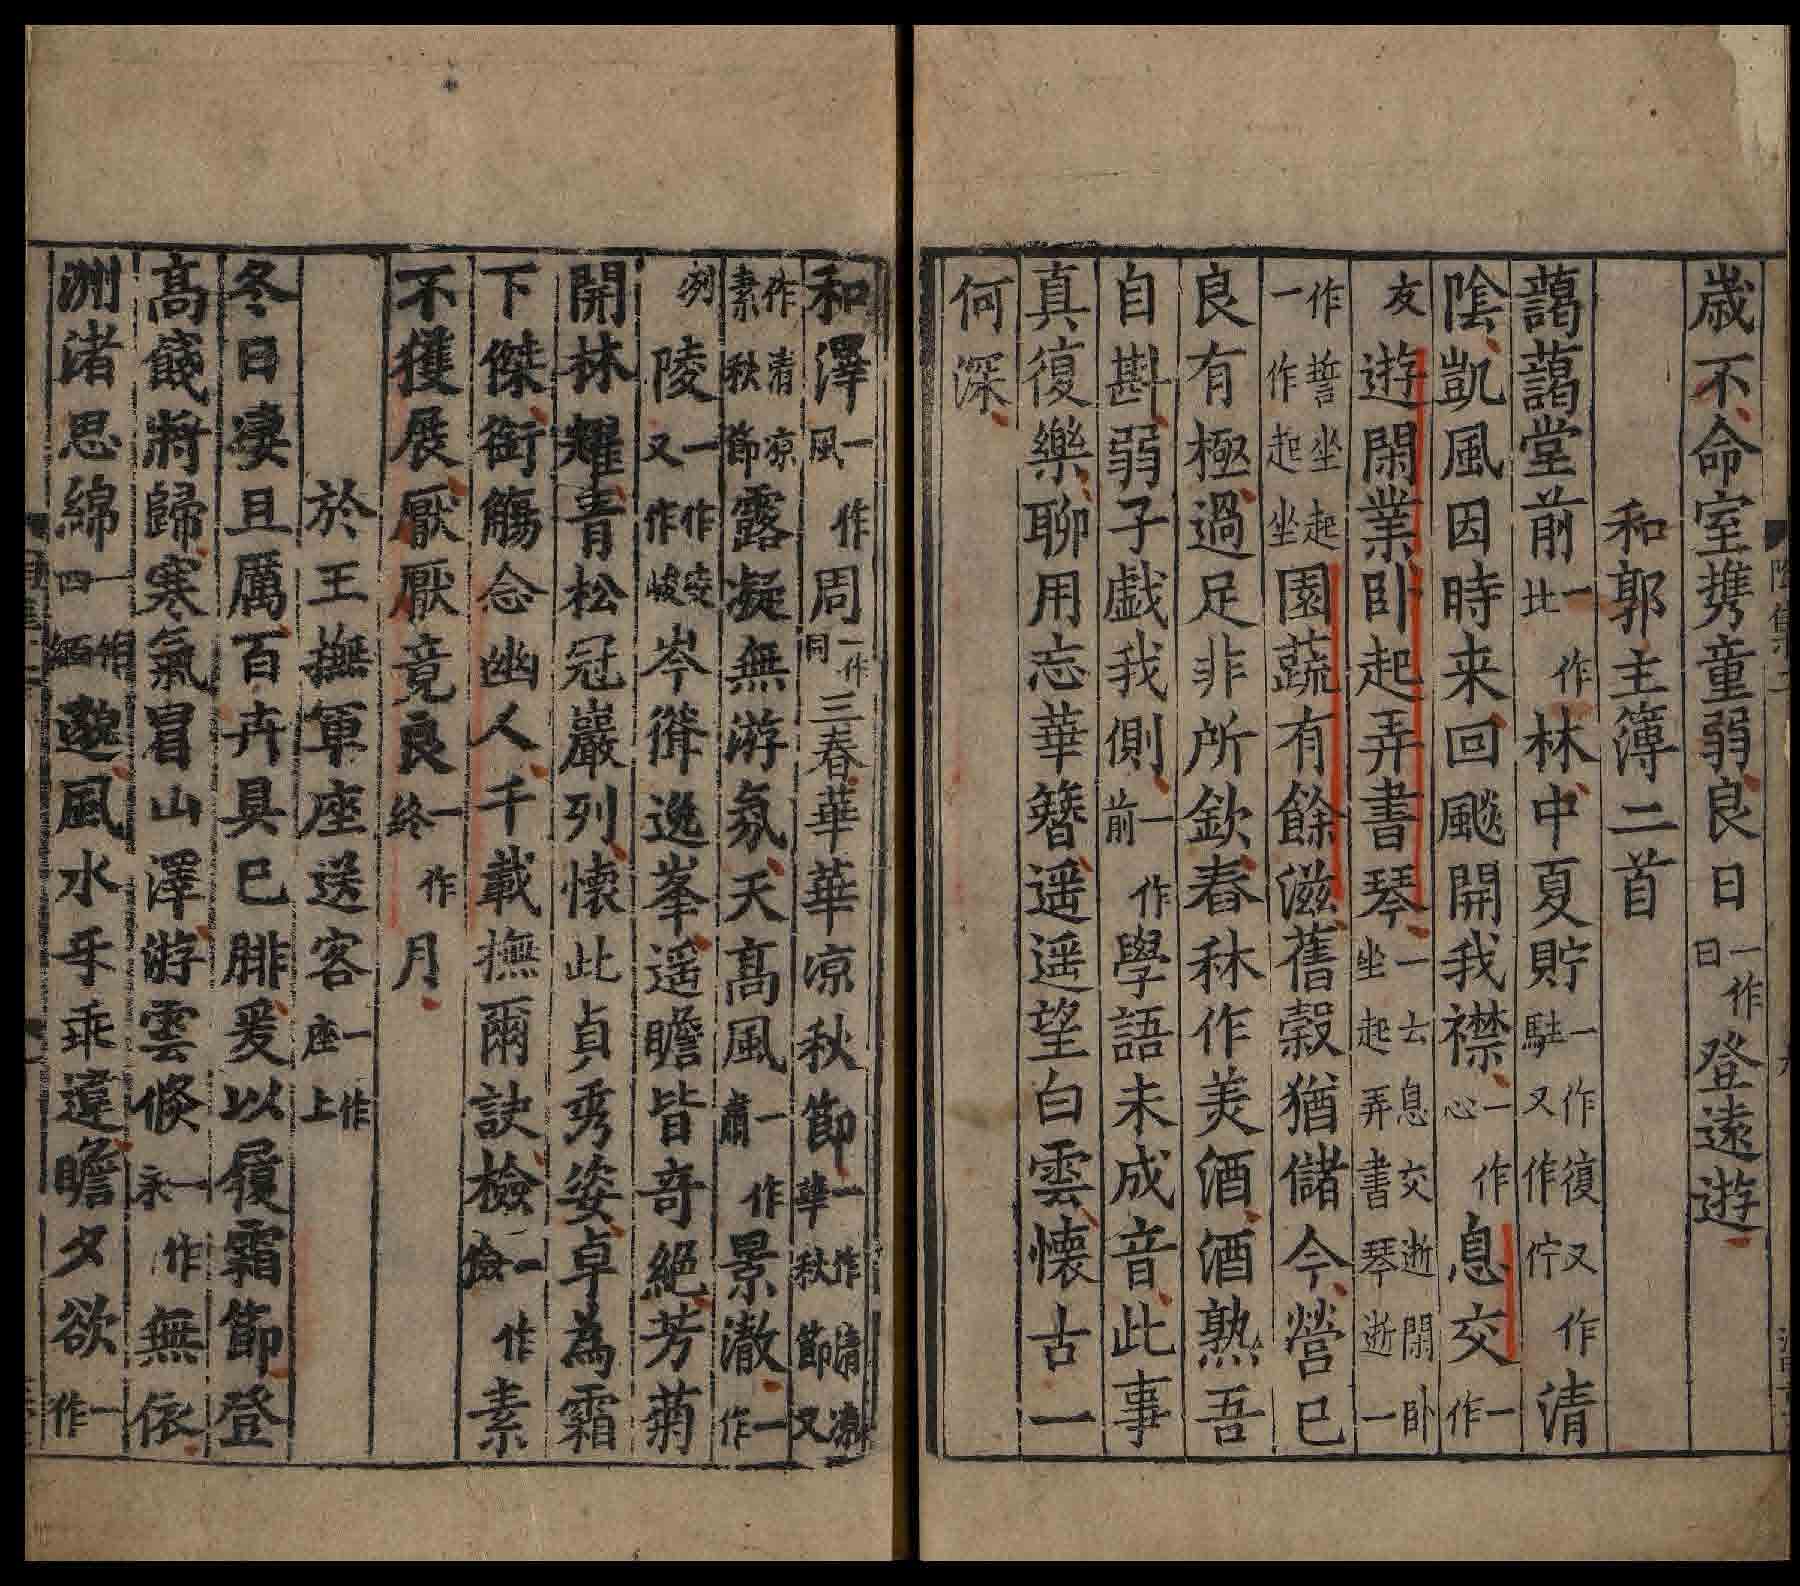 歲不命室携童弱良日一作曰登遠遊
和郭主簿二首
藹藹堂前一作北林中夏貯一作復又作駐又作佇清
陰凱風因時来回颷開我襟一作心息交一作
友遊閑業卧起弄書琴一云息交逝閑卧坐起弄書琴逝一
作誓坐起一作起坐園蔬有餘滋舊穀猶儲今營已
良有極過足非所欽舂秫作美酒酒熟吾
自斟弱子戲我側一作前學語未成音此事
真復樂聊用忘華簪遥遥望白雲懷古一
何深
和澤一作風周一作同三春華華凉秋節一作清凉華秋節又
作清凉素秋節露凝無游氛天髙風一作肅景澈一作
冽陵一作安又作峻岑聳逸峯遥瞻皆竒絕芳菊
開林耀青松冠巖列懷此貞秀姿卓為霜
下傑銜觴念幽人千載撫爾訣檢一作儉素
不獲展厭厭竟良一作終月
於王撫軍座送客一作座上
冬日凄且厲百卉具已腓爰以履霜節登
髙餞將歸寒氣冒山澤游雲倐一作永無依
洲渚思綿邈風水互乖違瞻夕欲一作